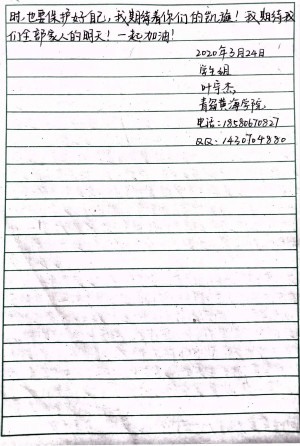 时,也要保护好自己,我期待着你们的凯旋!我期待我
们全部家人的明天!一起加油!
2020年3月24日
学生组
叶宇杰
青岛黄海学院
电话:18580670827
QQ:1430704880